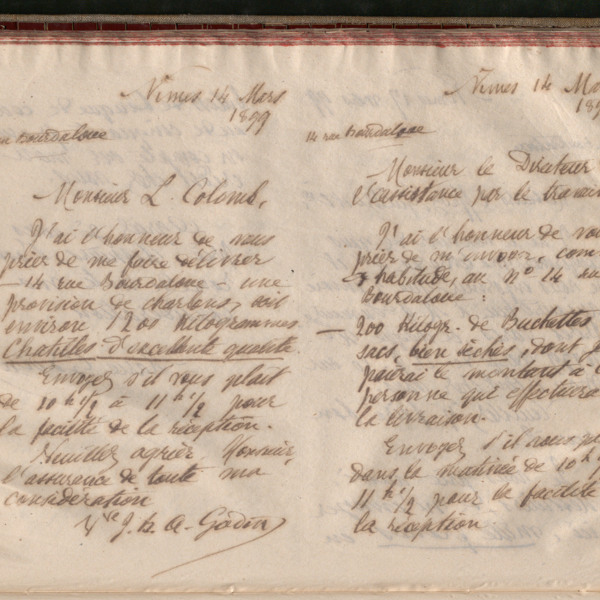 Nimes 14 Mars
1899
Bourdaloue
Monsieur L. Colomb,
J'ai l'honneur de vous
prier de me faire délivrer
– 14 rue Bourdaloue – une
provision de charbons, soit
environ 1200 Kilogrammes
Chatilles d'excellente qualité.
Envoyez s'il vous plait
de 10 h 1/2 à 11 h 1/2 pour
la facilité de la réception.
Veuillez agréer, Monsieur,
l'assurance de toute ma
considération
Vve J. B. A. Godin
Nimes 14 Ma
189
14 rue Bourdaloue
Monsieur le Directeur
l'assistance par le travai
J'ai l'honneur de vou
prier de m'envoyer, com
d'habitude, au No 14 ru
Bourdaloue :
– 200 Kilogr. de Buchettes
sacs, bien séchés, dont j
payerai le montant à l
personne qui effectuera
la livraison.
Envoyez s'il vous pl
dans la matinée de 10 h
11 h 1/2 pour la facilité
la réception